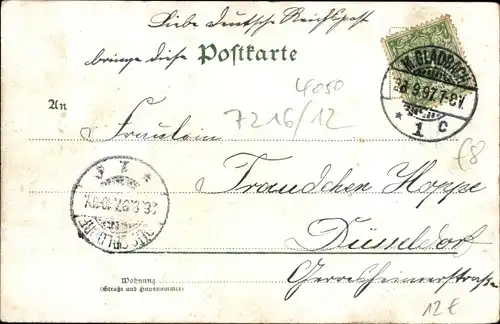 Liebe Deutsche Reichspost
bringe diese Postkarte
M. GLADBACH
26.9.97.7-8V.
* 1 c
4050
7216/12
An
Fräulein
Traudchen Hoppe
Düsseldorf
26.9.97.
Gerresheimerstraße
Wohnung
(Straße und Hausnummer)
12€